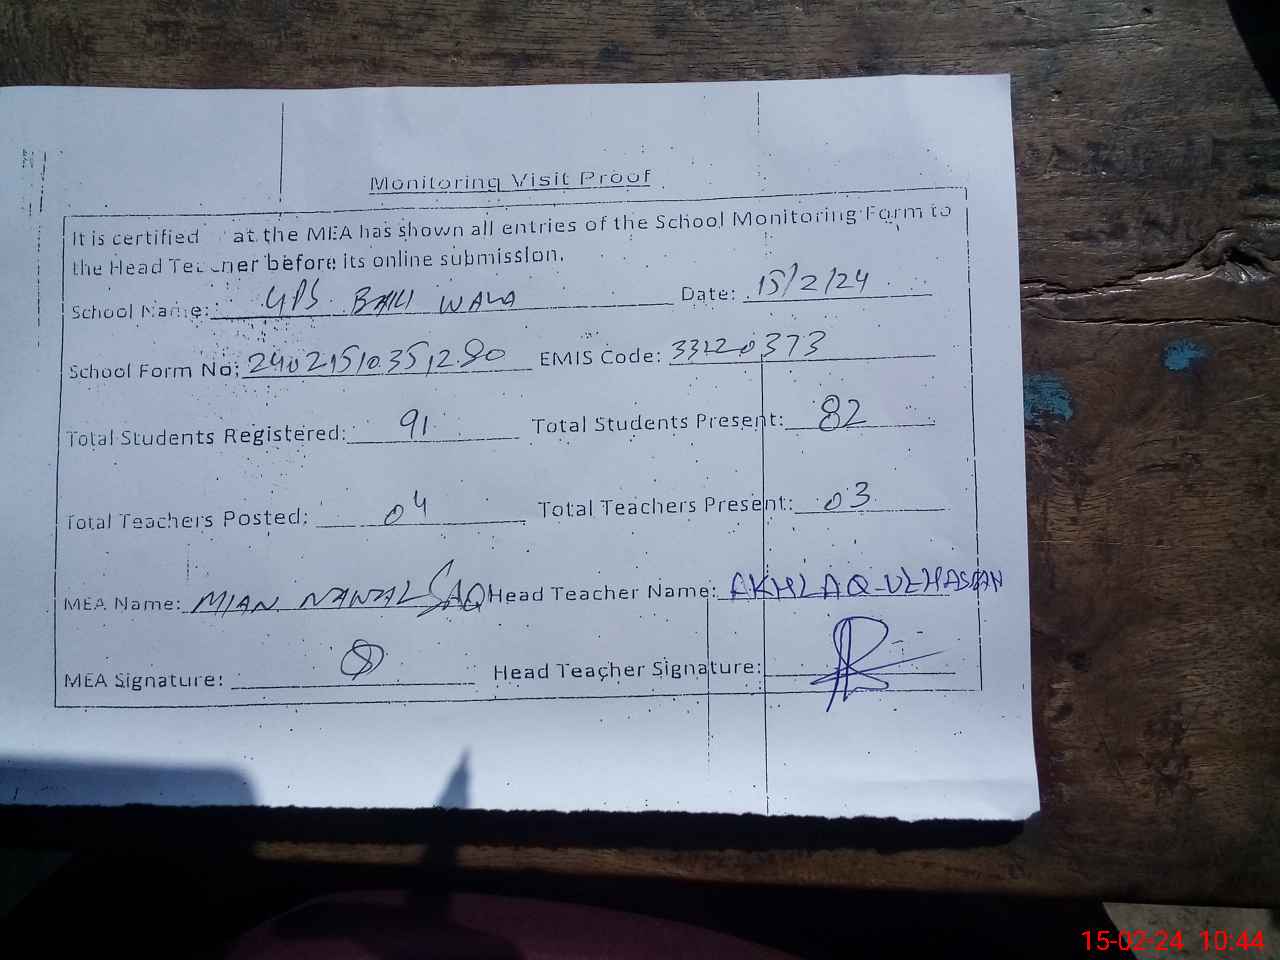 Monitoring Visit Proof
It is certified at the MEA has shown all entries of the School Monitoring Form to
the Head Teacher before its online submission.
School Name: GPS BALI WALA Date: 15/2/24
School Form No: 240215103512 EMIS Code: 33120373
Total Students Registered: 91 Total Students Present: 82
Total Teachers Posted: 04 Total Teachers Present: 03
MEA Name: MIAN Head Teacher Name: AKHLAQ-UL-HASSAN
MEA Signature: Head Teacher Signature:
15-02-24 10:44